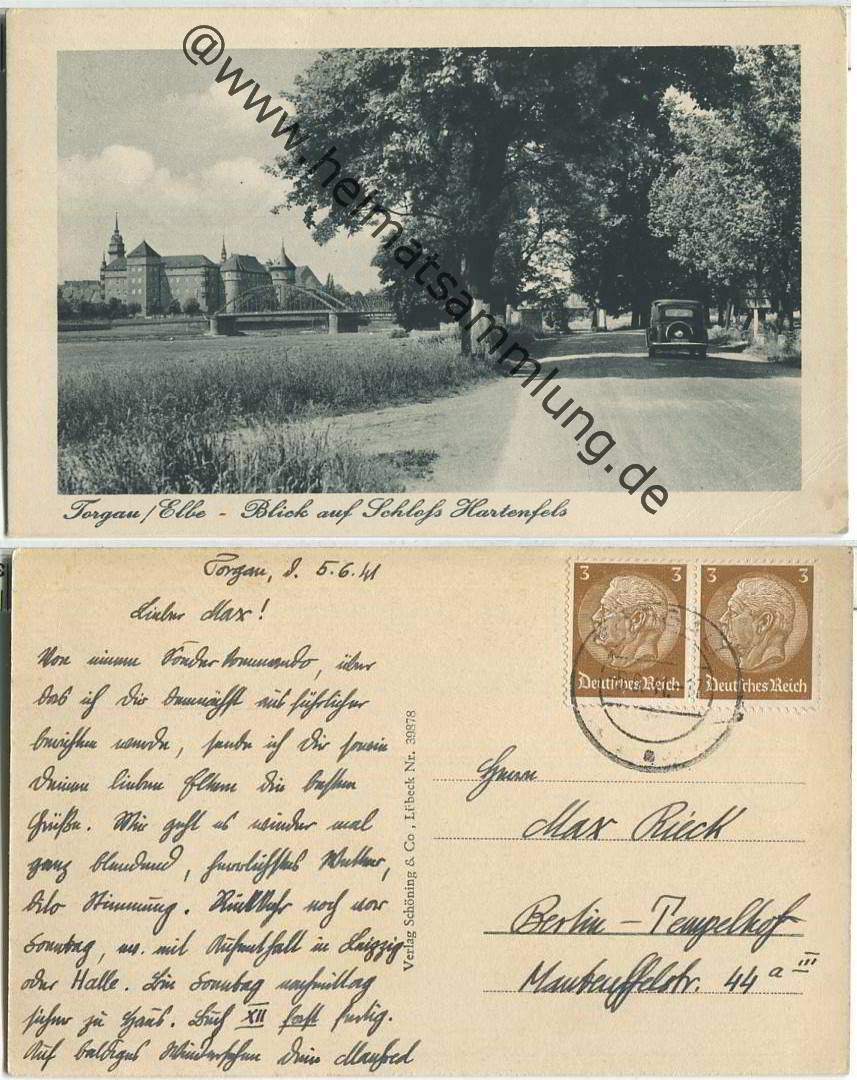 @www.heimatsammlung.de
Torgau/Elbe - Blick auf Schloß Hartenfels
Torgau, d. 5.6.41
Lieber Max!
Von einem Sonderkommando, über
das ich Dir demnächst ausführlicher
berichten werde, sende ich Dir sowie
Deinen lieben Eltern die besten
Grüße. Mir geht es wieder mal
ganz blendend, herrlichstes Wetter,
dito Stimmung. Rückkehr noch vor
Sonntag, ev. mit Aufenthalt in Leipzig
oder Halle. Bin Sonntag nachmittag
sicher zu Haus. Buch XII fast fertig.
Auf baldiges Wiedersehen Dein Manfred
Verlag Schöning & Co., Lübeck Nr. 39878
3 3
Deutsches Reich
3 3
Deutsches Reich
Herrn
Max Rieck
Berlin-Tempelhof
Manteuffelstr. 44a III